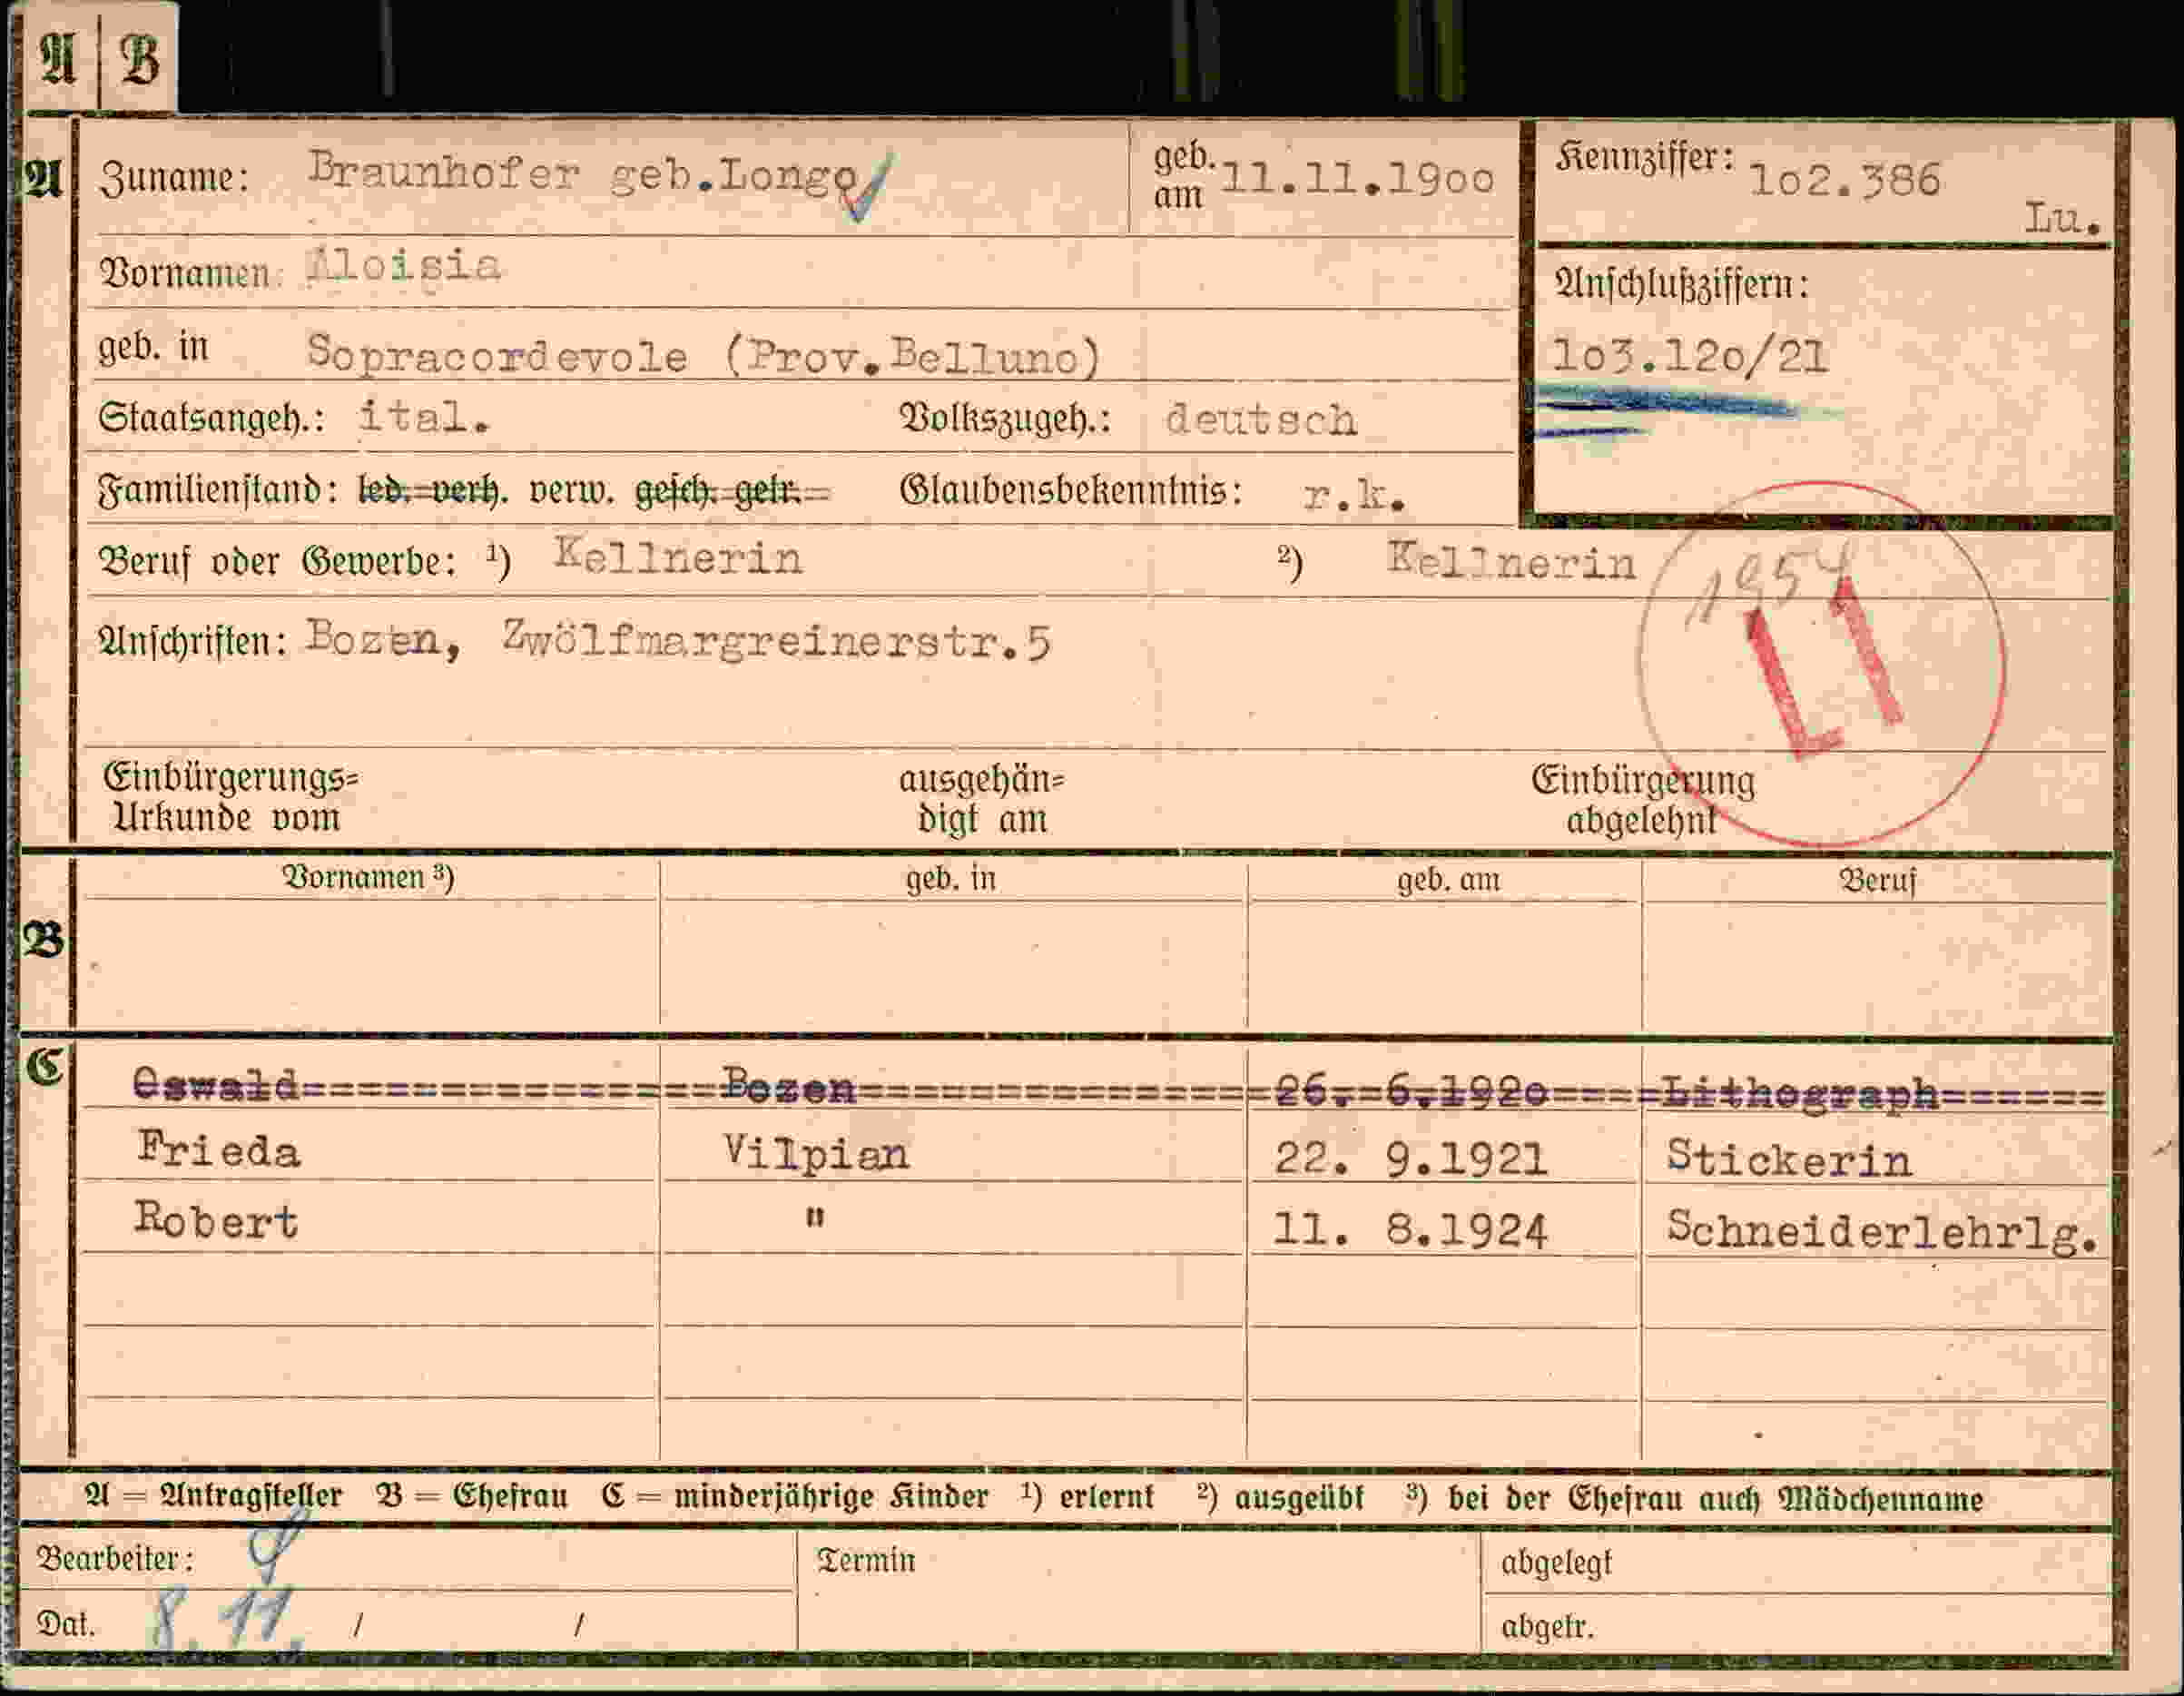 A B
A Zuname: Braunhofer geb.Longo geb. am 11.11.19oo Kennziffer: 1o2.386
Lu.
Vornamen: Aloisia
Anschlußziffern:
geb. in Sopracordevole (Prov.Belluno) 1o3.12o/21
Staatsangeh.: ital. Volkszugeh.: deutsch
Familienstand: led. verh. verw. gesch. getr. Glaubensbekenntnis: r.k.
Beruf oder Gewerbe: ¹) Kellnerin ²) Kellnerin
1954
Anschriften: Bozen, Zwölfmargreinerstr.5
L1
Einbürgerungs= ausgehän= Einbürgerung
Urkunde vom digt am abgelehnt
Vornamen ³) geb. in geb. am Beruf
B
C Oswald Bozen 26. 6.192o Lithograph
Frieda Vilpian 22. 9.1921 Stickerin
Robert " 11. 8.1924 Schneiderlehrlg.
A = Antragsteller B = Ehefrau C = minderjährige Kinder ¹) erlernt ²) ausgeübt ³) bei der Ehefrau auch Mädchenname
Bearbeiter: Termin abgelegt
Dat. 8.11. / / abgetr.